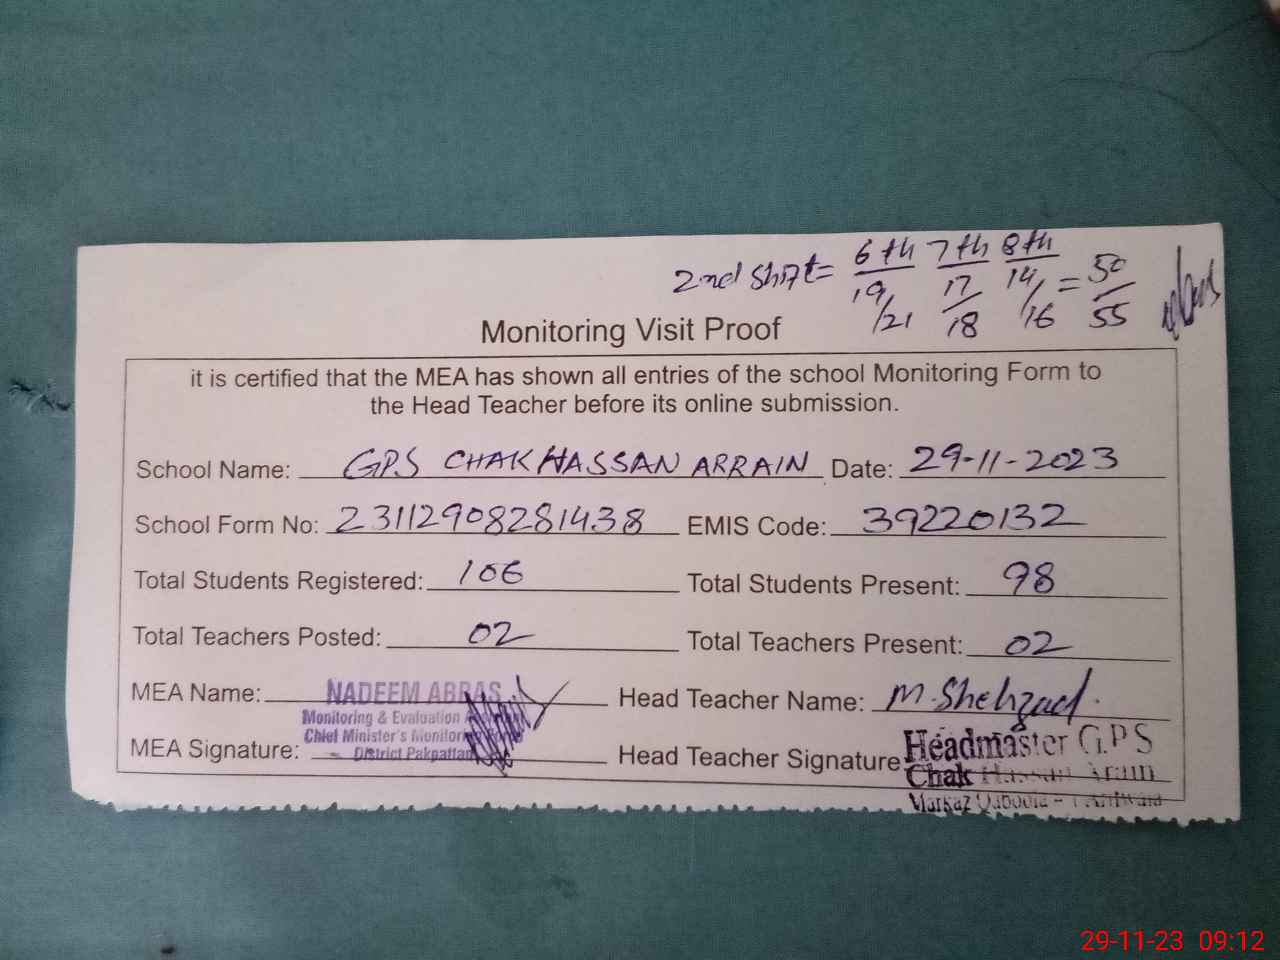 2nd Shift = 6th 7th 8th
19/21 17/18 14/16 = 50/55
Monitoring Visit Proof
it is certified that the MEA has shown all entries of the school Monitoring Form to
the Head Teacher before its online submission.
School Name: GPS CHAK HASSAN ARRAIN Date: 29-11-2023
School Form No: 23112908281438 EMIS Code: 39220132
Total Students Registered: 106 Total Students Present: 98
Total Teachers Posted: 02 Total Teachers Present: 02
MEA Name: NADEEM ABBAS Head Teacher Name: M. Shehzad.
Monitoring & Evaluation
Chief Minister's Monitoring
District Pakpattan
MEA Signature: Head Teacher Signature
Headmaster G.P.S
Chak Hassan Arain
Markaz Qaboola -
29-11-23 09:12